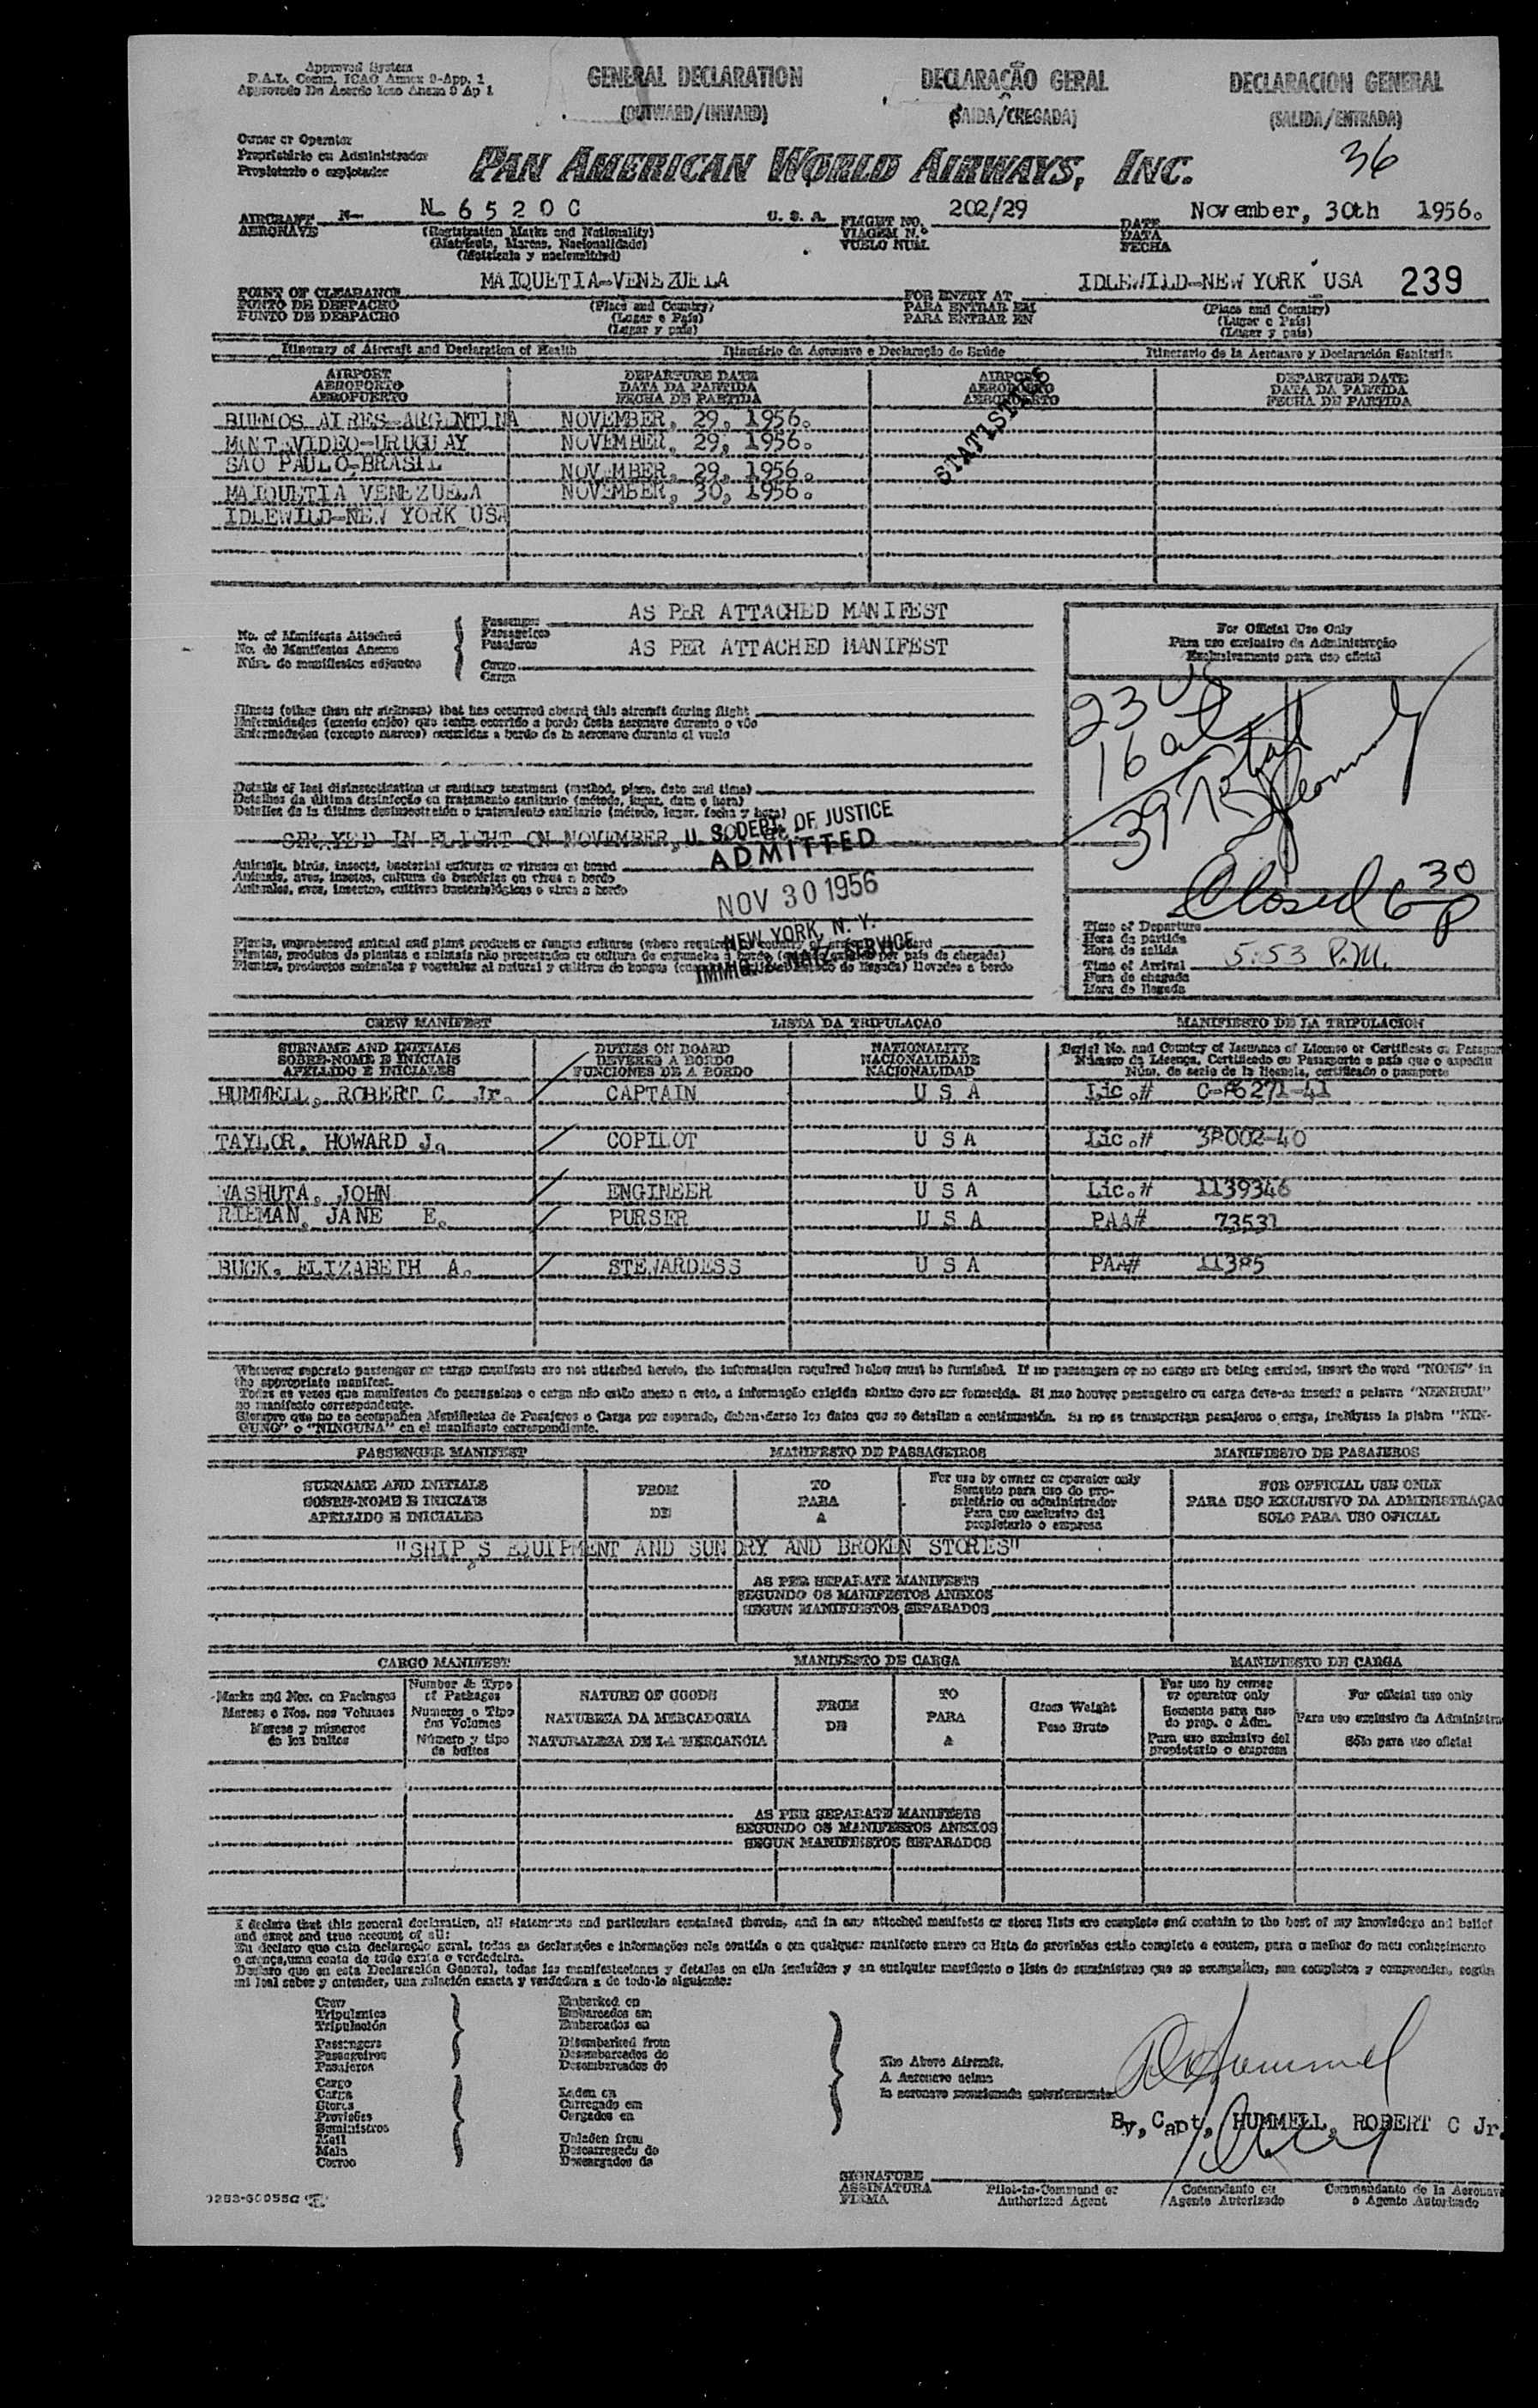 Approved System
F.A.L. Comm. ICAO Annex 9-App. 1
Approvado De Acordo Icao Anexo 9 Ap 1
GENERAL DECLARATION
(OUTWARD/INWARD)
DECLARAÇÃO GERAL
(SAIDA/CHEGADA)
DECLARACION GENERAL
(SALIDA/ENTRADA)
36
Owner or Operator
Proprietário ou Administrador
Propietario o explotador
PAN AMERICAN WORLD AIRWAYS, INC.
AIRCRAFT N- N- 6 5 2 0 C U. S. A. FLIGHT NO. 202/29 DATE November, 30th 1956.
AERONAVE (Registration Marks and Nationality) VIAGEM N.º DATA
(Matrícula, Marcas, Nacionalidade) VUELO NUM. FECHA
(Matrícula y nacionalidad)
POINT OF CLEARANCE MAIQUETIA-VENEZUELA FOR ENTRY AT IDLEWILD-NEW YORK USA 239
PONTO DE DESPACHO (Place and Country) PARA ENTRAR EM (Place and Country)
PUNTO DE DESPACHO (Lugar e País) PARA ENTRAR EN (Lugar e País)
(Lugar y país) (Lugar y país)
Itinerary of Aircraft and Declaration of Health Itinerário da Aeronave e Declaração de Saúde Itinerario de la Aeronave y Declaración Sanitaria
AIRPORT DEPARTURE DATE AIRPORT DEPARTURE DATE
AEROPORTO DATA DA PARTIDA AEROPORTO DATA DA PARTIDA
AEROPUERTO FECHA DE PARTIDA AEROPUERTO FECHA DE PARTIDA
STATISTICS
BUENOS AIRES-ARGENTINA NOVEMBER, 29, 1956.
MONTEVIDEO-URUGUAY NOVEMBER, 29, 1956.
SAO PAULO-BRASIL NOVEMBER, 29, 1956.
MAIQUETIA VENEZUELA NOVEMBER, 30, 1956.
IDLEWILD-NEW YORK USA
No. of Manifests Attached
No. de Manifestos Anexos
Núm. de manifiestos adjuntos
Passenger AS PER ATTACHED MANIFEST
Passageiros
Pasajeros AS PER ATTACHED MANIFEST
Cargo
Carga
For Official Use Only
Para uso exclusivo da Administração
Exclusivamente para uso oficial
16 al
39 Total
Closed 6 30 P
Illness (other than air sickness) that has occurred aboard this aircraft during flight
Enfermidades (exceto enjôo) que tenha ocorrido a bordo desta aeronave durante o vôo
Enfermedades (excepto mareos) ocurridas a bordo de la aeronave durante el vuelo
Details of last disinsectization or sanitary treatment (method, place, date and time)
Detalhes da última desinfeção ou tratamento sanitario (método, lugar, data e hora)
Detalles de la última desinsectación o tratamiento sanitario (método, lugar, fecha y hora)
SPRAYED IN FLIGHT ON NOVEMBER,
U. S. DEPT. OF JUSTICE
ADMITTED
NOV 30 1956
NEW YORK, N. Y.
IMMIG. & NATZ. SERVICE
Animals, birds, insects, bacterial cultures or viruses on board
Animais, aves, insetos, cultura de bactérias ou virus a bordo
Animales, aves, insectos, cultivos bacteriológicos o virus a bordo
Plants, unprocessed animal and plant products or fungus cultures (where required by country of arrival) on board
Plantas, produtos de plantas e animais não processados ou cultura de cogumelos a bordo
Plantas, productos animales y vegetales al natural y cultivos de hongos llevados a bordo
Time of Departure
Hora da partida
Hora de salida
Time of Arrival 5:53 P.M.
Hora de chegada
Hora de llegada
CREW MANIFEST LISTA DA TRIPULAÇÃO MANIFIESTO DE LA TRIPULACION
SURNAME AND INITIALS DUTIES ON BOARD NATIONALITY Serial No. and Country of Issuance of License or Certificate or Passport
SOBRE-NOME E INICIAIS DEVERES A BORDO NACIONALIDADE Número da Licença, Certificado ou Passaporte e país que o expediu
APELLIDO E INICIALES FUNCIONES DE A BORDO NACIONALIDAD Núm. de serie de la licencia, certificado o pasaporte
HUMMELL, ROBERT C. Jr. CAPTAIN U S A Lic.# C-86271-41
TAYLOR, HOWARD J. COPILOT U S A Lic.# 38002-40
WASHUTA, JOHN ENGINEER U S A Lic.# 1139346
RIEMAN, JANE E. PURSER U S A PAA# 73531
BUCK, ELIZABETH A. STEWARDESS U S A PAA# 11385
Whenever separate passenger or cargo manifests are not attached hereto, the information required below must be furnished. If no passengers or no cargo are being carried, insert the word "NONE" in
the appropriate manifest.
Todas as vezes que manifestos de passageiros o carga não estão anexo a este, a informação exigida abaixo deve ser fornecida. Si nao houver passageiro ou carga deve-se inserir a palavra "NENHUM"
no manifesto correspondente.
Siempre que no se acompañen Manifiestos de Pasajeros o Carga por separado, deben darse los datos que se detallan a continuación. Si no se transportan pasajeros o carga, inclúyase la plabra "NIN-
GUNO" o "NINGUNA" en el manifiesto correspondiente.
PASSENGER MANIFEST MANIFESTO DE PASSAGEIROS MANIFIESTO DE PASAJEROS
SURNAME AND INITIALS FROM TO For use by owner or operator only FOR OFFICIAL USE ONLY
SOBRE-NOME E INICIAIS DE PARA Somente para uso do pro- PARA USO EXCLUSIVO DA ADMINISTRAÇÃO
APELLIDO E INICIALES A prietário ou administrador SOLO PARA USO OFICIAL
Para uso exclusivo del
propietario o empresa
"SHIP,S EQUIPMENT AND SUNDRY AND BROKEN STORES"
AS PER SEPARATE MANIFESTS
SEGUNDO OS MANIFESTOS ANEXOS
SEGUN MANIFIESTOS SEPARADOS
CARGO MANIFEST MANIFESTO DE CARGA MANIFIESTO DE CARGA
Marks and Nos. on Packages Number & Type of Packages NATURE OF GOODS FROM TO Gross Weight For use by owner or operator only For official use only
Marcas e Nos. nos Volumes Numeros e Tipo dos Volumes NATUREZA DA MERCADORIA DE PARA Peso Bruto Somente para uso do prop. o Adm. Para uso exclusivo da Administra
Marcas y números de los bultos Número y tipo de bultos NATURALEZA DE LA MERCANCIA A Para uso exclusivo del propietario o empresa Sólo para uso oficial
AS PER SEPARATE MANIFESTS
SEGUNDO OS MANIFESTOS ANEXOS
SEGUN MANIFIESTOS SEPARADOS
I declare that this general declaration, all statements and particulars contained therein, and in any attached manifests or stores lists are complete and contain to the best of my knowledge and belief
and exact and true account of all:
Eu declaro que esta declaração geral, todas as declarações e informações nela contida o em qualquer manifesto anexo ou lista de provisões estão completo e contem, para o melhor do meu conhecimento
e crença, uma conta de tudo exata e verdadeira.
Declaro que en esta Declaración General, todas las manifestaciones y detalles en ella incluídos y en cualquier manifiesto o lista de suministros que se acompañen, son completos y comprenden, según
mi leal saber y entender, una relación exacta y verdadera a de todo lo siguiente:
Crew Embarked on
Tripulantes Embarcados em
Tripulación Embarcados en
Passengers Disembarked from
Passageiros Desembarcados do
Pasajeros Desembarcados de
Cargo
Carga Laden on
Stores Carregado em
Provisões Cargados en
Suministros
Mail Unladen from
Mala Descarregado do
Correo Descargados de
The Above Aircraft.
A Aeronave acima
la aeronave mencionada anteriormente
By, Capt, HUMMELL, ROBERT C Jr.
SIGNATURE
ASSINATURA
FIRMA
Pilot-in-Command or Authorized Agent
Comandante ou Agente Autorizado
Commandante de la Aeronave o Agente Autorizado